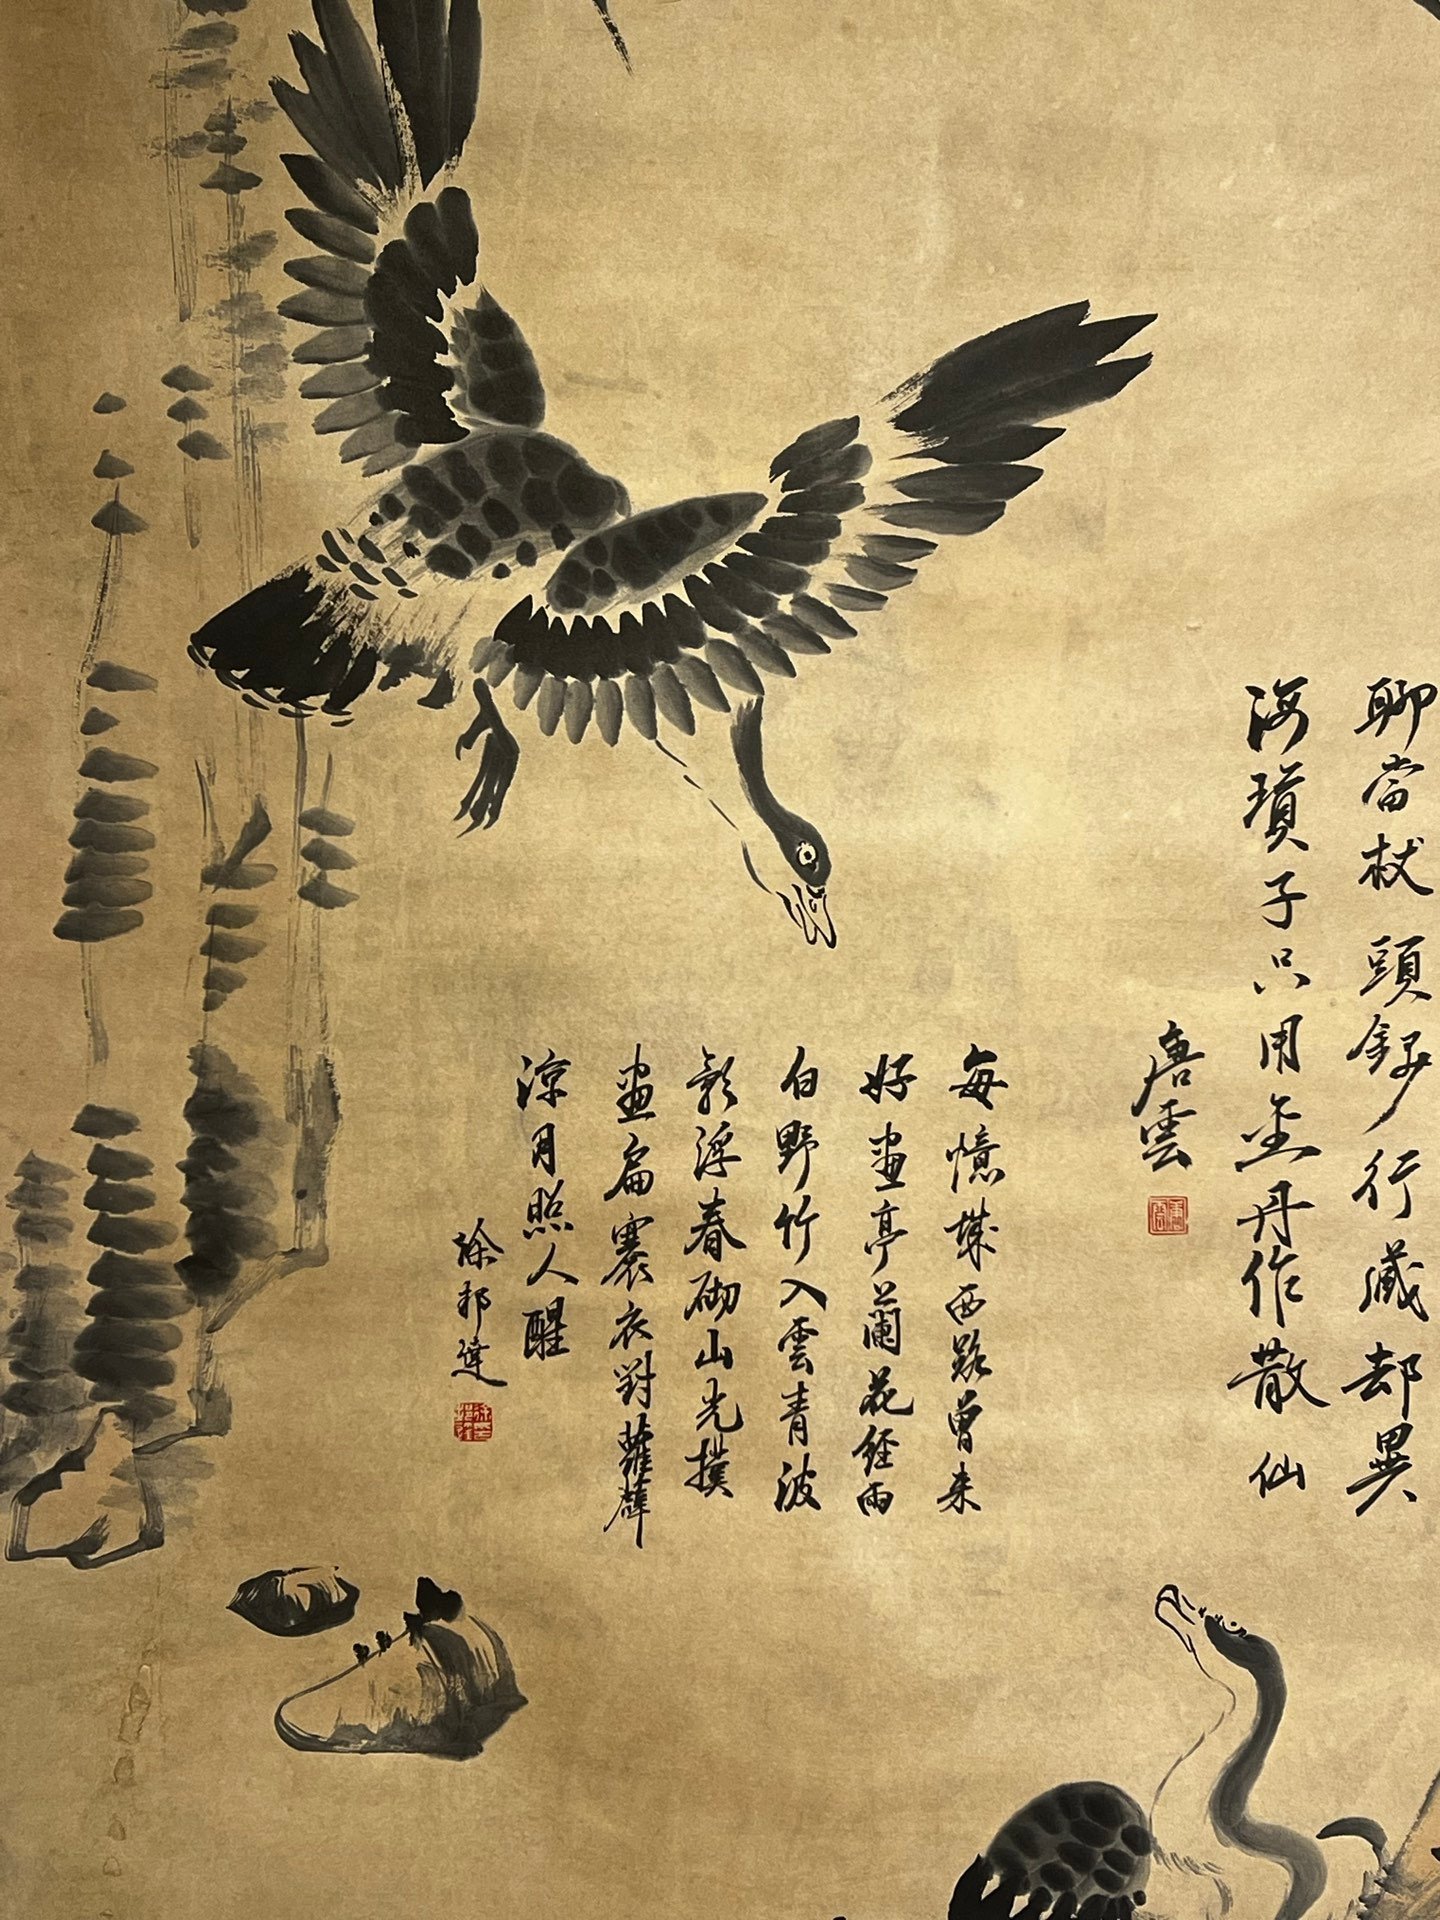 聊當杖頭錢行藏却異
海瓊子只用金丹作散仙
唐雲
每憶城西路曾来
好畫亭蘭花經雨
白野竹入雲青波
影浮春砌山光撲
畫扁褰衣對蘿薜
涼月照人醒
徐邦達